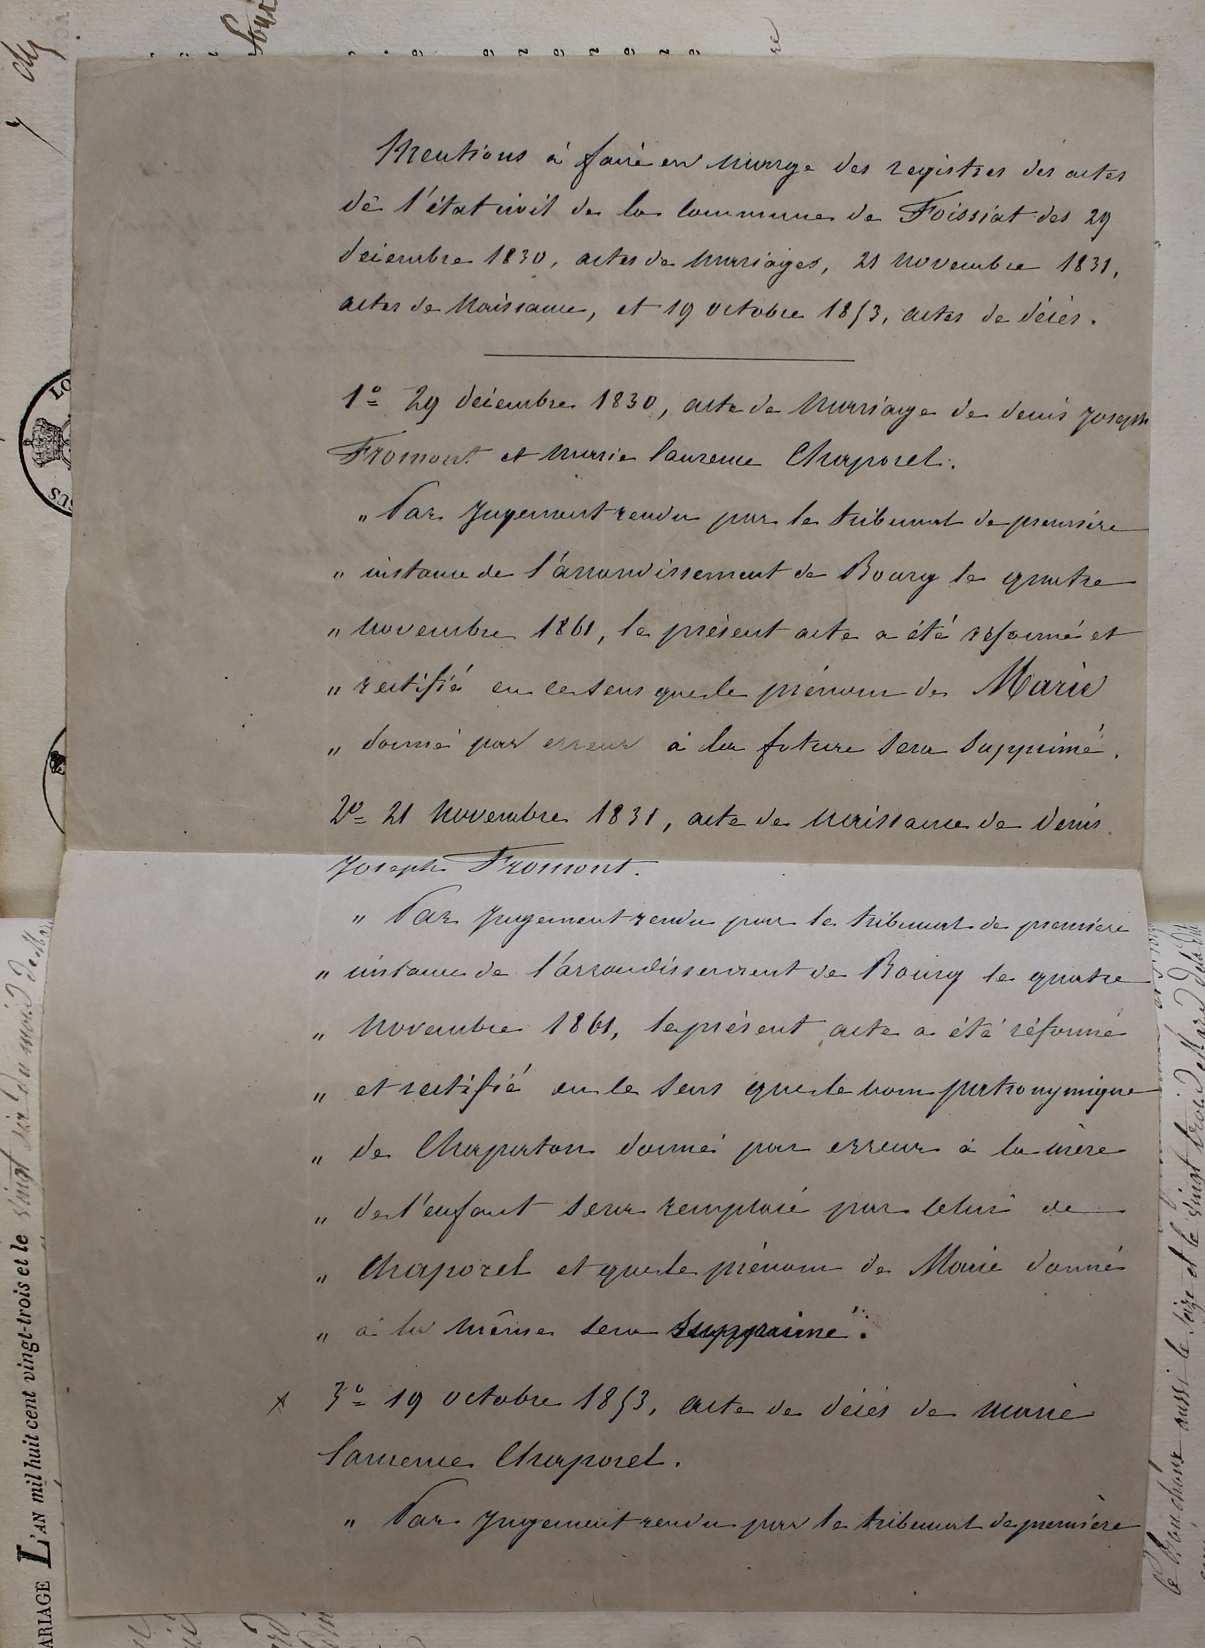 Mentions à faire en marge des registres des actes
de l'état civil de la commune de Foissiat des 29
décembre 1830, actes de mariages, 21 novembre 1831,
actes de naissance, et 19 octobre 1853, actes de décès.
1° 29 décembre 1830, acte de mariage de denis Joseph
Fromont et marie laurence Chaporel.
" Par jugement rendu par le tribunal de première
" instance de l'arrondissement de Bourg le quatre
" novembre 1861, le présent acte a été réformé et
" rectifié en ce sens que le prénom de Marie
" donné par erreur à la future sera supprimé.
2° 21 novembre 1831, acte de naissance de denis
Joseph Fromont.
" Par jugement rendu par le tribunal de première
" instance de l'arrondissement de Bourg le quatre
" novembre 1861, le présent acte a été réformé
" et rectifié en ce sens que le nom patronymique
" de Chaparton donné par erreur à la mère
" de l'enfant sera remplacé par celui de
" Chaporel et que le prénom de Marie donné
" à la même sera supprimé.
x 3° 19 octobre 1853, acte de décès de marie
laurence Chaporel.
" Par jugement rendu par le tribunal de première
ARIAGE L'AN mil huit cent vingt-trois et le vingt six du mois de
le seize et le vingt trois